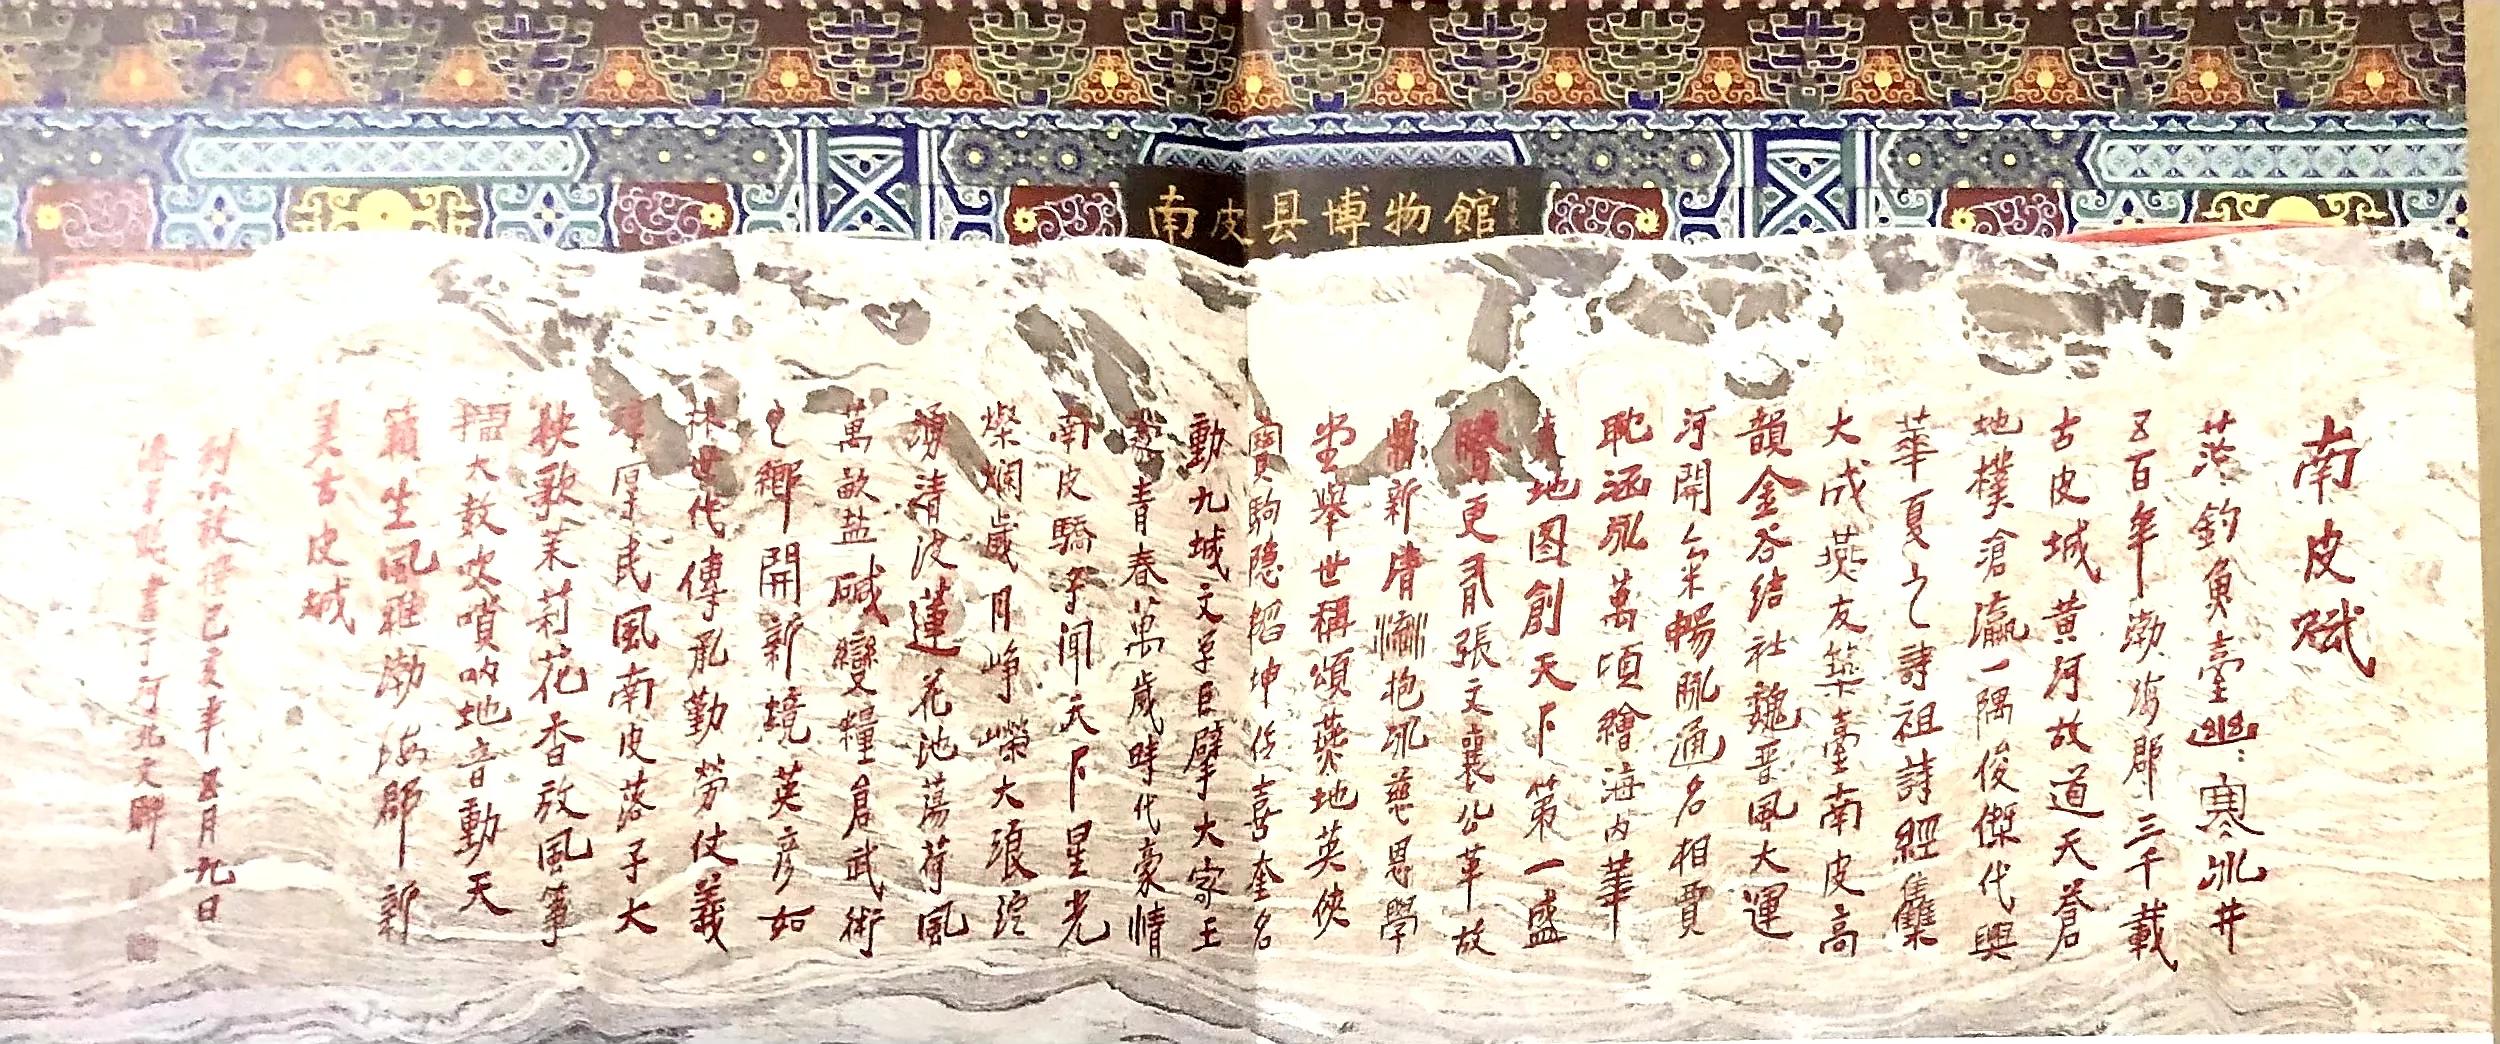 南皮县博物館
南皮賦
茫茫釣魚臺幽幽寒冰井
五百年渤海郡三千載
古皮城黄河故道天蒼
地樸滄瀛一隅俊傑代興
華夏之詩祖詩經集
大成燕友築臺南皮高
韻金谷結社魏晋風大運
河開糸米暢脈通名相賈
耽涵泓萬頃繪海内華
夷地图創天下第一盛
譽更有張文襄公革故
鼎新清流抱冰慈恩學
堂舉世稱頌燕地英俠
寶駒隐韜坤伶喜奎名
動九城文學巨擘大家王
蒙青春萬歲時代豪情
南皮驕子聞天下星光
燦爛歲月崢嶸大浪淀
湧清波蓮花池蕩荷風
萬畝盐碱變糧倉武術
之鄉開新境英彦如
林世代傳承勤勞仗義
淳厚民風南皮落子大
秧歌茉莉花香放風箏
擂大鼓吹嗩吶地音動天
籟生風雅渤海郡新
美古皮城
劉小放撰己亥年五月九日
書于河北文聯